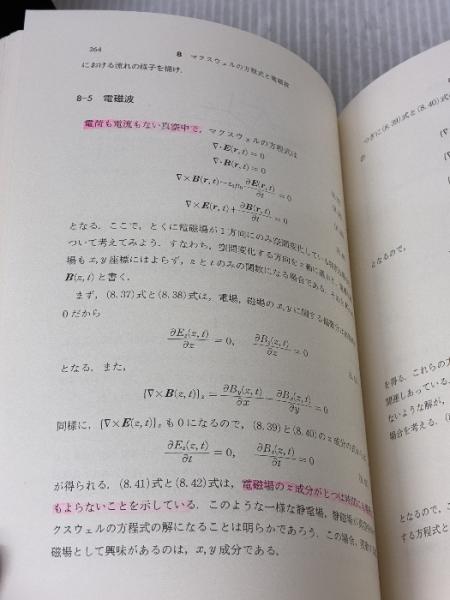 264
8 マクスウェルの方程式と電磁波
における流れの様子を描け.
8-5 電磁波
電荷も電流もない真空中で, マクスウェルの方程式は
∇·E(r, t) = 0
∇·B(r, t) = 0
∇×B(r, t) − ε₀μ₀ ∂E(r, t)/∂t = 0
∇×E(r, t) + ∂B(r, t)/∂t = 0
となる. ここで, とくに電磁場が1方向にのみ空間変化している
ついて考えてみよう. すなわち, 空間変化する方向をz軸に
場もx, y座標にはよらず, zとtのみの関数になる場合である.
B(z, t) と書く.
まず, (8.37)式と(8.38)式は, 電場, 磁場のx, yに関する
0だから
∂E_z(z, t)/∂z = 0, ∂B_z(z, t)/∂z = 0
となる. また,
{∇×B(z, t)}_z = ∂B_y(z, t)/∂x − ∂B_x(z, t)/∂y = 0
同様に, {∇×E(z, t)}_z も0になるので, (8.39)と(8.40)のz成分の
∂E_z(z, t)/∂t = 0, ∂B_z(z, t)/∂t = 0
が得られる. (8.41)式と(8.42)式は, 電磁場のz成分が
もよらないことを示している. このような一様な静電場, 静磁場が
クスウェルの方程式の解になることは明らかであろう. この場合,
磁場として興味があるのは, x, y成分である.
つぎに(8.39)式と(8.40)式の
となるので,
を得る. これらの
関連しあっている.
ないような解が,
場合を考える.
となるので,
する方程式と